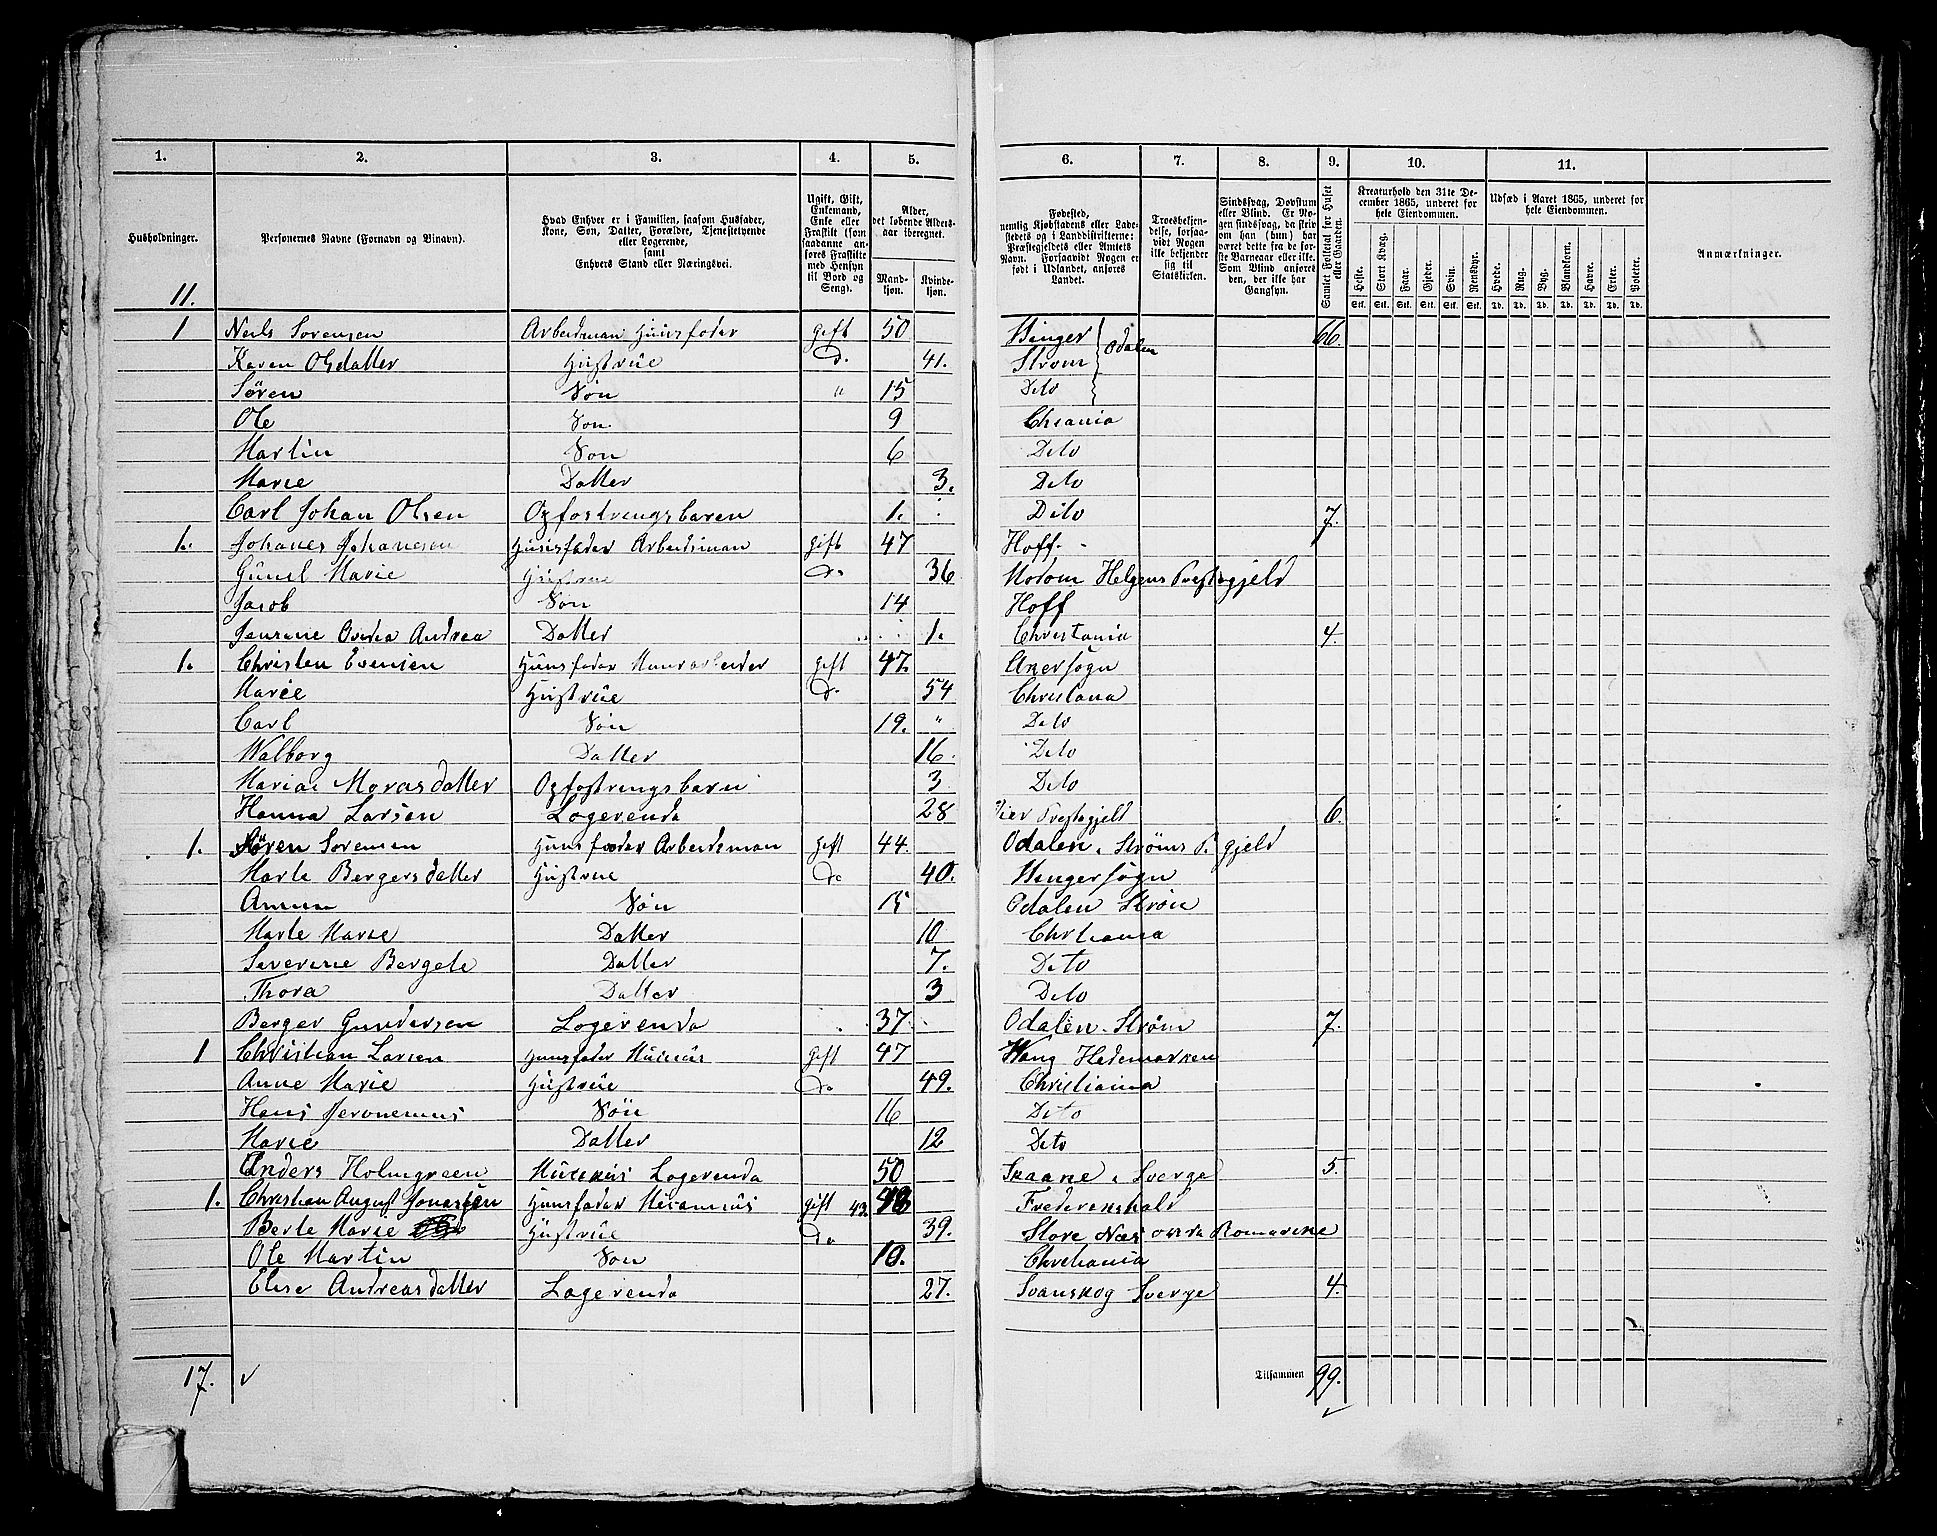 1. 2. 3. 4. 5. 6. 7. 8. 9. 10. 11.
Husholdninger.
Personernes Navne (Fornavn og Tilnavn).
Hvad Enhver er i Familien, saasom Husfader, Kone, Søn, Datter, Forældre, Tjenestetyende eller Logerende, samt Enhvers Stand eller Næringsvei.
Ugift, Gift, Enkemand, Enke eller Fraskilt (som saadanne anføres Fraskilte med Hensyn til Bord og Seng).
Alder, det løbende Alders-aar iberegnet.
Mand-kjøn. Kvinde-kjøn.
Fødested, nemlig Kjøbstadens eller Ladestedets og i Landdistrikterne: Præstegjeldets eller Amtets Navn. Forsaavidt Nogen er født i Udlandet, anføres Landet.
Troesbekjendelse, forsaavidt Nogen ikke bekjender sig til Statskirken.
Sindssvag, Døvstum eller Blind. Er Nogen sindssvag, da skrives om han (hun) har været dette fra de første Barneaar eller ikke. Som Blind anføres den, der ikke har Gangsyn.
Samlet Folketal for Huset eller Gaarden.
Kreaturhold den 31te December 1865, underet for hele Eiendommen.
Heste. Stort Kvæg. Faar. Gjeder. Svin. Rensdyr.
Stk. Stk. Stk. Stk. Stk. Stk.
Udsæd i Aaret 1865, underet for hele Eiendommen.
Hvede. Rug. Byg. Blandkorn. Havre. Erter. Poteter.
Td. Td. Td. Td. Td. Td. Td.
Anmærkninger.
11.
1 Neils Sorensen Arbeidsman Huusfader gift 50 Winger Odalen 66.
Karen Olsdatter Hustrüe Do. 41. Strøm
Søren Søn " 15 Dito
Ole Søn 9 Chrania
Martin Søn 6 Dito
Marie Datter 3. Dito
Carl Johan Olsen Opfostringsbaren 1. Dito 7.
1. Johanes Johanesen Huusfader Arbeidsman gift 47 Hoff.
Gunel Marie Hustrüe Do 36 Modom Helgens Prestegjeld
Jacob Søn 14 Hoff
Jensine Ovidia Andrea Datter 1. Christania 4.
1. Christen Evensen Huusfader Muurarbeider gift 47. Akersogn
Marie Hustrüe Do. 54 Christiana
Carl Søn 19. " Dito
Walborg Datter 16. Dito
Datter Opfostringsbarn 3 Dito
Hanna Larsen Logerende 28 Lier Prestegjelt 6.
1. Søren Sorensen Huusfader Arbeidsman gift 44. Odalen, Strøms P. gjeld
Marte Bergersdatter Hustrüe Do 40. Wingersogn
Søn 15 Odalen Strøm
Marte Marie Datter 10 Chrtiania
Severine Bergete Datter 7. Dito
Thora Datter 3 Dito
Berger Gundersen Logerende 37. Odalen. Strøm 7.
1 Christian Larsen Huusfader gift 47 Wang Hedemarken
Anne Marie Hustrüe Do 49. Christiania
Hans Jeronemus Søn 16 Dito
Marie Datter 12 Dito
Anders Holmgreen Logerende 50 Skaane i Sverge 5.
1. Christian August Jonassen Huusfader gift 43. 43 Frederekshald
Berte Marie Hustrüe Do 39. Store Næs Romarike
Ole Martin Søn 10. Chrtiania
Elise Andreasdatter Logerende 27. Svanskog Sverge 4.
17. Tilsammen 99.